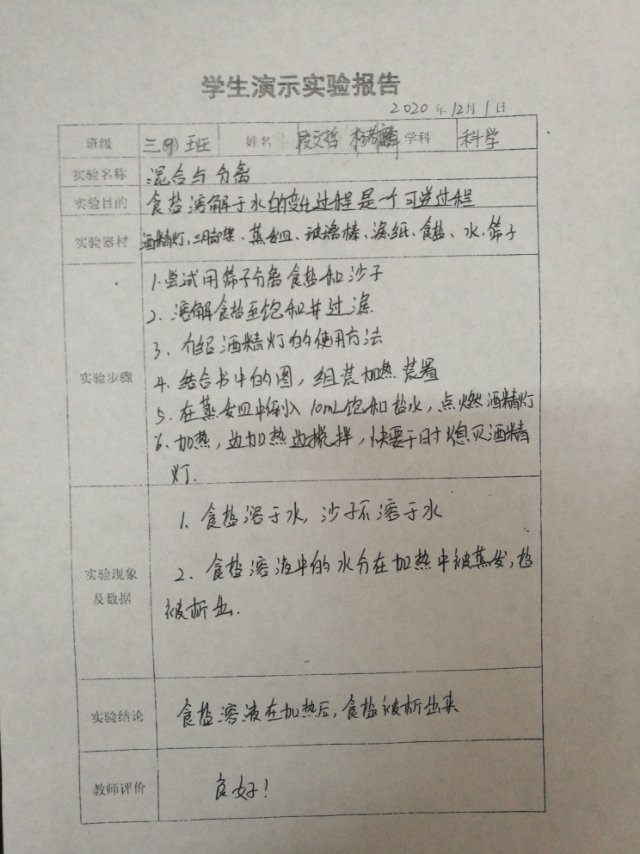 学生演示实验报告
2020年12月1日
班级 三(9)班 姓名 段文哲 学科 科学
实验名称 混合与分离
实验目的 食盐溶解于水的变化过程是一个可逆过程
实验器材 酒精灯、三脚架、蒸发皿、玻璃棒、滤纸、食盐、水、筛子
实验步骤
1.尝试用筛子分离食盐和沙子
2.溶解食盐至饱和并过滤
3.介绍酒精灯的使用方法
4.结合书中的图,组装加热装置
5.在蒸发皿中倒入10mL饱和盐水,点燃酒精灯
6.加热,边加热边搅拌,快要干时熄灭酒精
灯.
实验现象
及数据
1.食盐溶于水,沙子不溶于水
2.食盐溶液中的水分在加热中被蒸发,盐
被析出.
实验结论 食盐溶液在加热后,食盐被析出来
教师评价 良好!